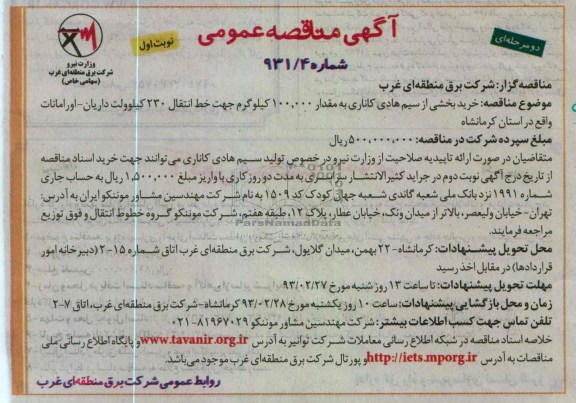 آگهی مناقصه عمومی
شماره ۹۳۱/۴
دو مرحله‌ای
نوبت اول
وزارت نیرو
شرکت برق منطقه‌ای غرب
(سهامی خاص)
مناقصه گزار: شرکت برق منطقه‌ای غرب
موضوع مناقصه: خرید بخشی از سیم هادی کاناری به مقدار ۱۰۰,۰۰۰ کیلوگرم جهت خط انتقال ۲۳۰ کیلوولت داریان-اورامانات
واقع در استان کرمانشاه
مبلغ سپرده شرکت در مناقصه: ۵۰۰,۰۰۰,۰۰۰ ریال
متقاضیان در صورت ارائه تاییدیه صلاحیت از وزارت نیرو در خصوص تولید سیم هادی کاناری می‌توانند جهت خرید اسناد مناقصه
از تاریخ درج آگهی نوبت دوم در جراید کثیرالانتشار سراسری به مدت دو روز کاری با واریز مبلغ ۱,۵۰۰,۰۰۰ ریال به حساب جاری
شماره ۱۹۹۱ نزد بانک ملی شعبه گاندی شعبه جهان کودک کد ۱۵۰۹ به نام شرکت مهندسین مشاور موننکو ایران به آدرس:
تهران-خیابان ولیعصر، بالاتر از میدان ونک، خیابان عطار، پلاک ۱۲، طبقه هفتم، شرکت موننکو گروه خطوط انتقال و فوق توزیع
مراجعه فرمایند.
محل تحویل پیشنهادات: کرمانشاه-۲۲ بهمن، میدان گلایول، شرکت برق منطقه‌ای غرب اتاق شماره ۱۵-۲ (دبیرخانه امور
قراردادها) در مقابل اخذ رسید
مهلت تحویل پیشنهادات: تا ساعت ۱۳ روز شنبه مورخ ۹۳/۰۲/۲۷
زمان و محل بازگشایی پیشنهادات: ساعت ۱۰ روز یکشنبه مورخ ۹۳/۰۲/۲۸ کرمانشاه-شرکت برق منطقه‌ای غرب، اتاق ۷-۲
تلفن تماس جهت کسب اطلاعات بیشتر: شرکت مهندسین مشاور موننکو ۸۱۹۶۷۰۲۹-۰۲۱
خلاصه اسناد مناقصه در شبکه اطلاع رسانی معاملات شرکت توانیر به آدرس www.tavanir.org.ir و پایگاه اطلاع رسانی ملی
مناقصات به آدرس http://iets.mporg.ir و پورتال شرکت برق منطقه‌ای غرب موجود می‌باشد.
روابط عمومی شرکت برق منطقه‌ای غرب
ParsNamadData